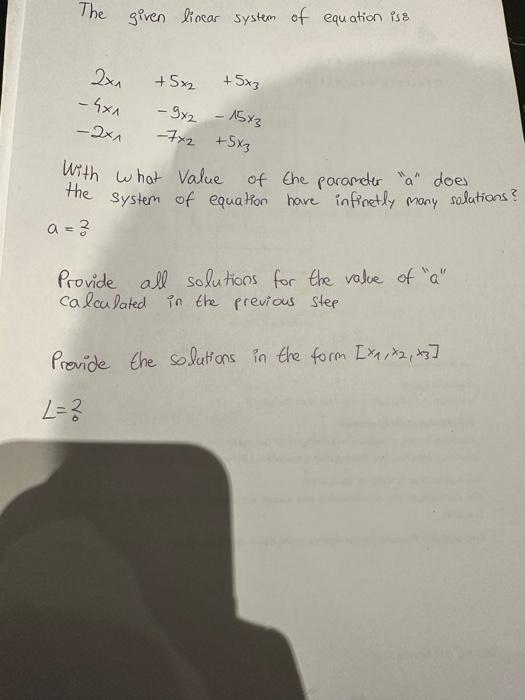 The given linear system of equation is:
2x₁ +5x₂ +5x₃
-4x₁ -9x₂ -15x₃
-2x₁ -7x₂ +5x₃
With what Value of the parameter "a" does
the system of equation have infinetly many solutions?
a = ?
Provide all solutions for the value of "a"
calculated in the previous step
Provide the solutions in the form [x₁, x₂, x₃]
L = ?